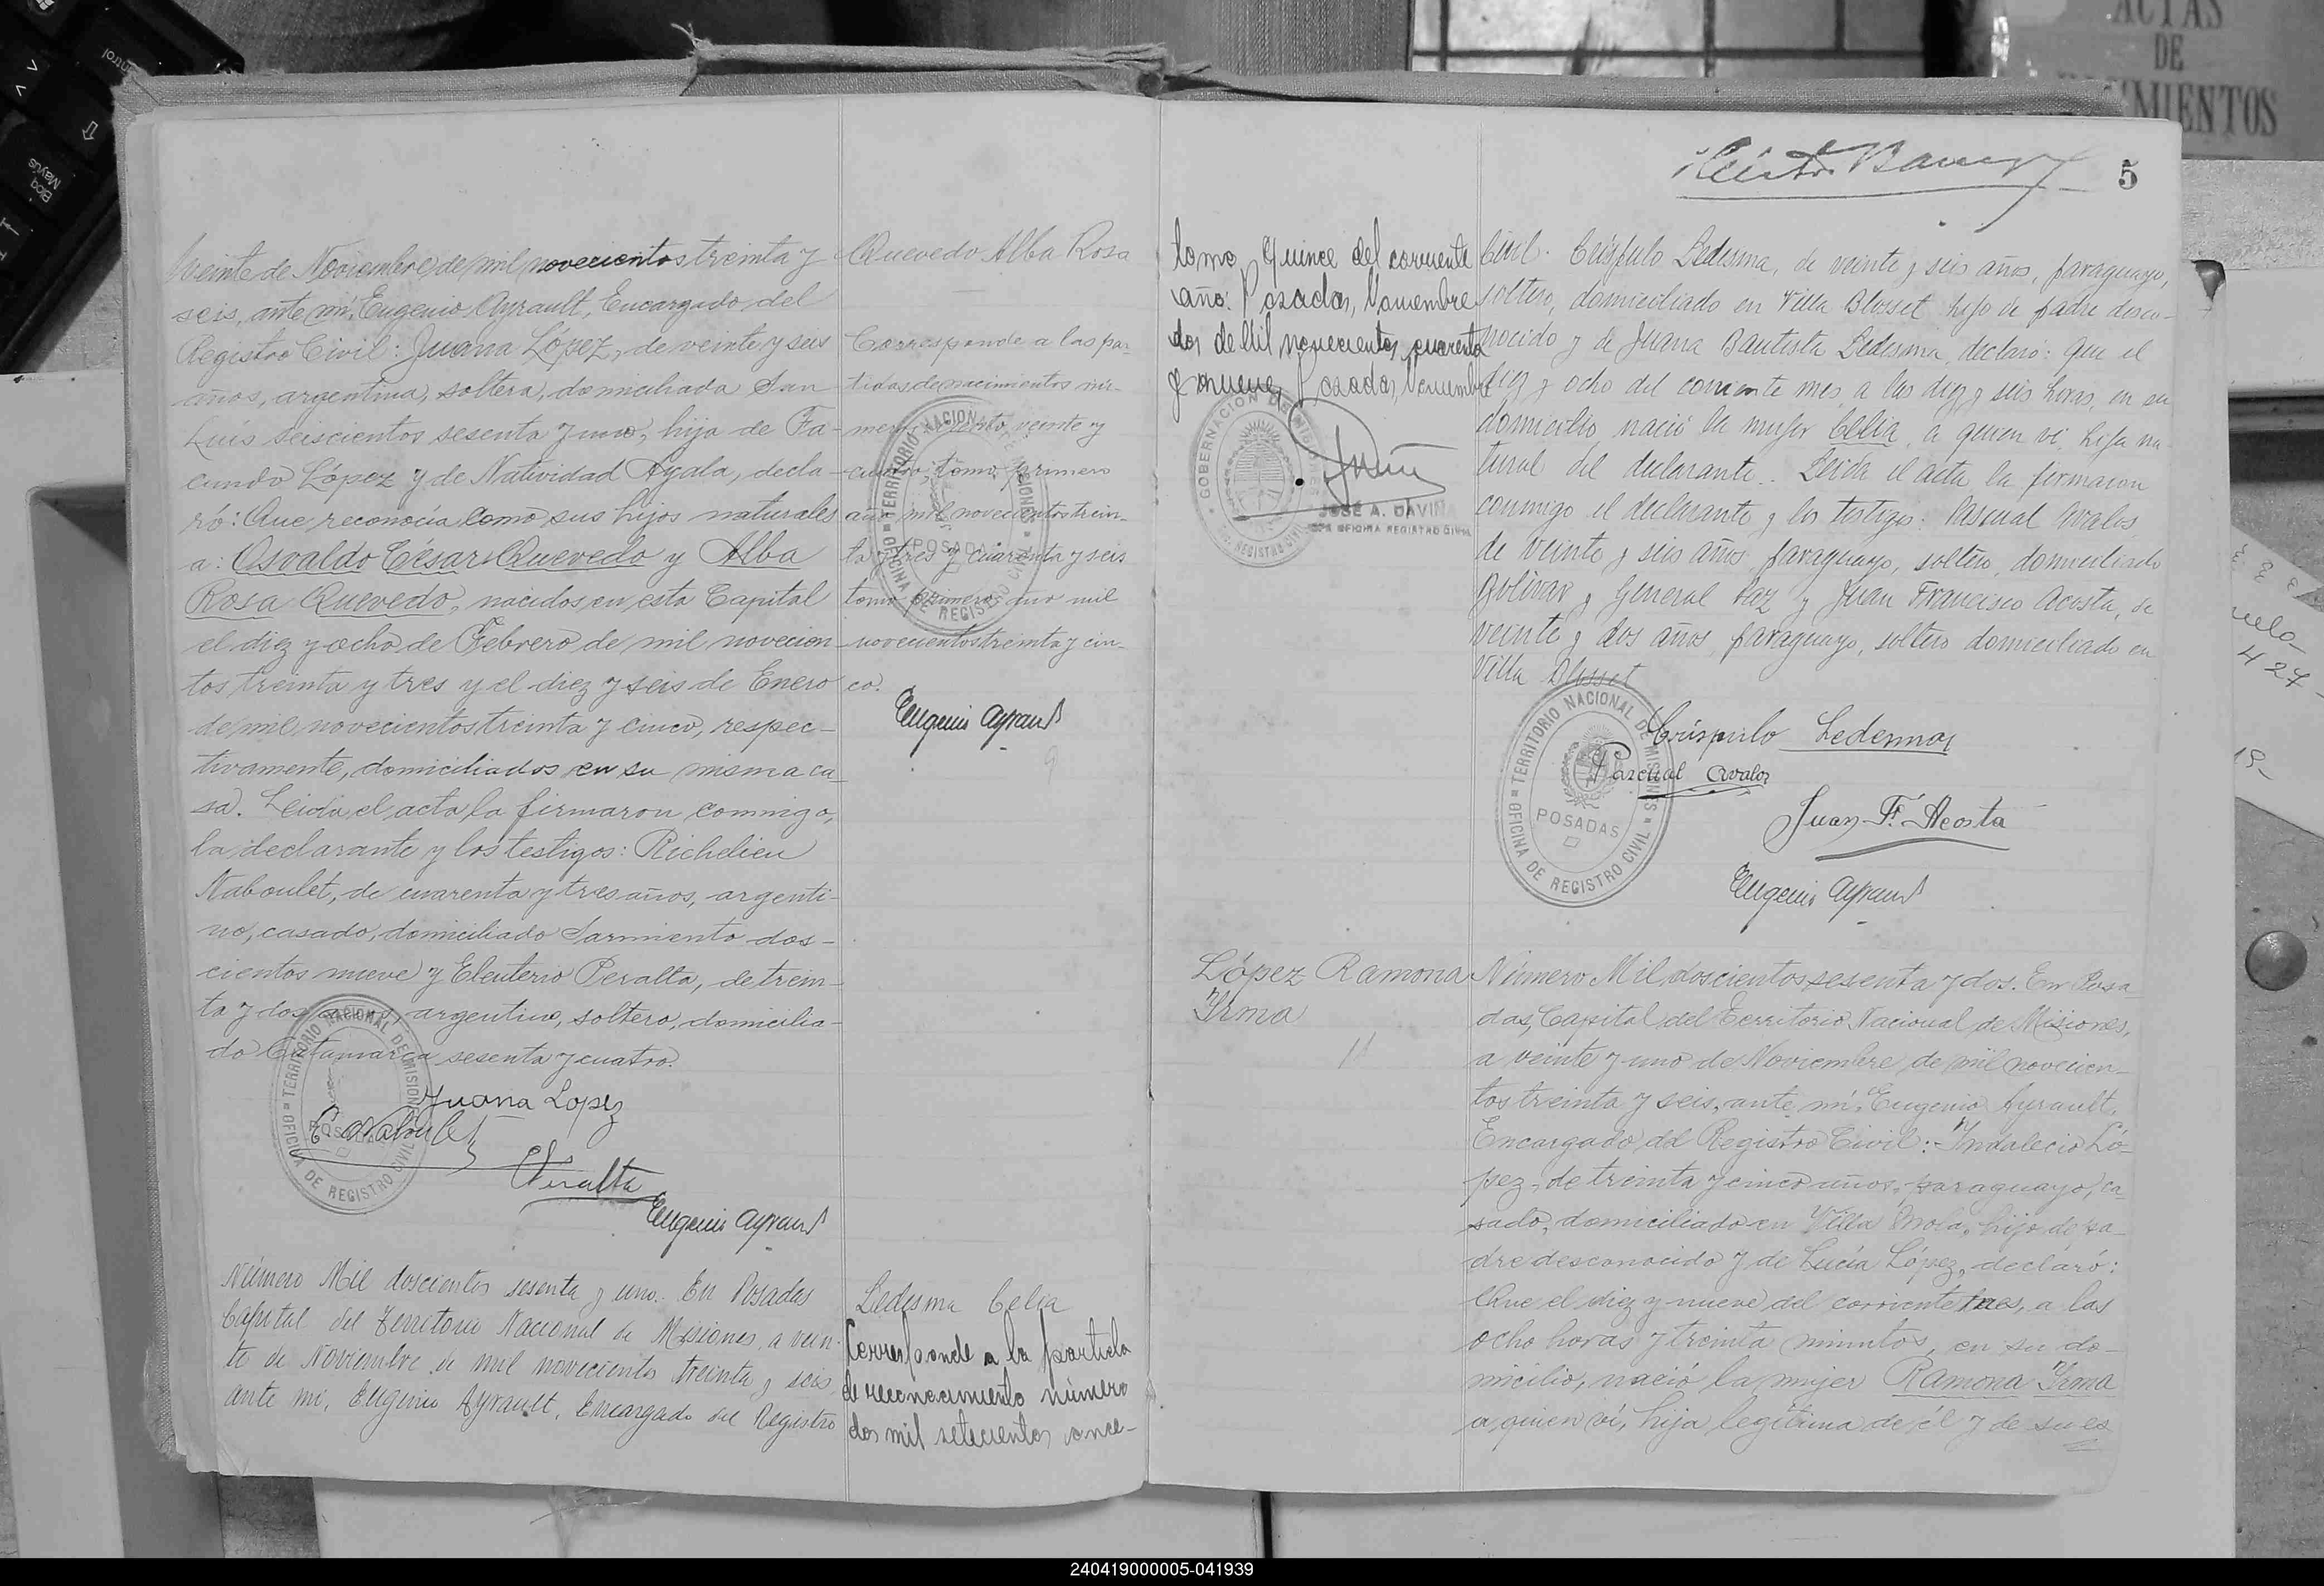 Veinte de Noviembre de mil novecientos treinta y
seis, ante mí, Eugenio Ayrault, Encargado del
Registro Civil: Juana López, de veinte y seis
años, argentina, soltera, domiciliada San
Luis seiscientos sesenta y uno, hija de Fa-
cundo López y de Natividad Ayala, decla-
ró: Que reconocía como sus hijos naturales
a: Osvaldo César Quevedo y Alba
Rosa Quevedo, nacidos en esta Capital
el diez y ocho de Febrero de mil novecien-
tos treinta y tres y el diez y seis de Enero
de mil novecientos treinta y cinco, respec-
tivamente, domiciliados en su misma ca-
sa. Leida el acta la firmaron conmigo,
la declarante y los testigos: Richelieu
Naboulet, de cuarenta y tres años, argenti-
no, casado, domiciliado Sarmiento dos-
cientos nueve y Eleuterio Peralta, de trein-
ta y dos años, argentino, soltero, domicilia-
do Catamarca sesenta y cuatro.
Juana Lopez
R. Naboulet
E Peralta
Eugenio Ayrault
OFICINA DE REGISTRO CIVIL TERRITORIO NACIONAL DE MISIONES
POSADAS
Quevedo Alba Rosa
Corresponde a las par-
tidas de nacimientos nú-
mero ciento veinte y
cuatro, tomo primero
año mil novecientos trein-
ta y tres y cuarenta y seis
tomo primero, año mil
novecientos treinta y cin-
co.
Eugenio Ayrault
9
OFICINA DE REGISTRO CIVIL TERRITORIO NACIONAL DE MISIONES
POSADAS
Número Mil doscientos sesenta y uno. En Posadas
Capital del Territorio Nacional de Misiones, a vein-
te de Noviembre de mil novecientos treinta y seis,
ante mi, Eugenio Ayrault, Encargado del Registro
Ledesma Celia
Corresponde a la partida
de reconocimiento número
dos mil setecientos once-
5
tomo Quince del corriente
año. Posadas, Noviembre
dos de Mil novecientos cuarenta
y nueve, Posadas, Noviembre
GOBERNACION DE MISIONES
REGISTRO CIVIL
JOSÉ A. DAVIÑA
JEFE OFICINA REGISTRO CIVIL
Civil: Críspulo Ledesma, de veinte y seis años, paraguayo,
soltero, domiciliado en Villa Blosset hijo de padre desco-
nocido y de Juana Bautista Ledesma, declaró: Que el
diez y ocho del corriente mes, a las diez y seis horas, en su
domicilio, nació la mujer Celia, a quien ví, hija na-
tural del declarante. Leida el acta la firmaron
conmigo el declarante y los testigos: Pascual Avalos
de veinte y seis años, paraguayo, soltero, domiciliado
Bolívar y General Paz y Juan Francisco Acosta, de
veinte y dos años, paraguayo, soltero domiciliado en
Villa Blosset
Críspulo Ledesma
Pascual Avalos
Juan F. Acosta
Eugenio Ayrault
OFICINA DE REGISTRO CIVIL TERRITORIO NACIONAL DE MISIONES
POSADAS
López Ramona
Irma
11
Número Mil doscientos sesenta y dos. En Posa-
das, Capital del Territorio Nacional de Misiones,
a veinte y uno de Noviembre de mil novecien-
tos treinta y seis, ante mí, Eugenio Ayrault,
Encargado del Registro Civil:- Indalecio Ló-
pez, de treinta y cinco años, paraguayo, ca-
sado, domiciliado en Villa Mola, hijo de pa-
dre desconocido y de Lucía López, declaró:
Que el diez y nueve del corriente mes, a las
ocho horas y treinta minutos, en su do-
micilio, nació la mujer Ramona Irma
a quien ví, hija legítima de él y de su es
ACTAS
DE
Control
Bloq
Mayús
427
240419000005-041939